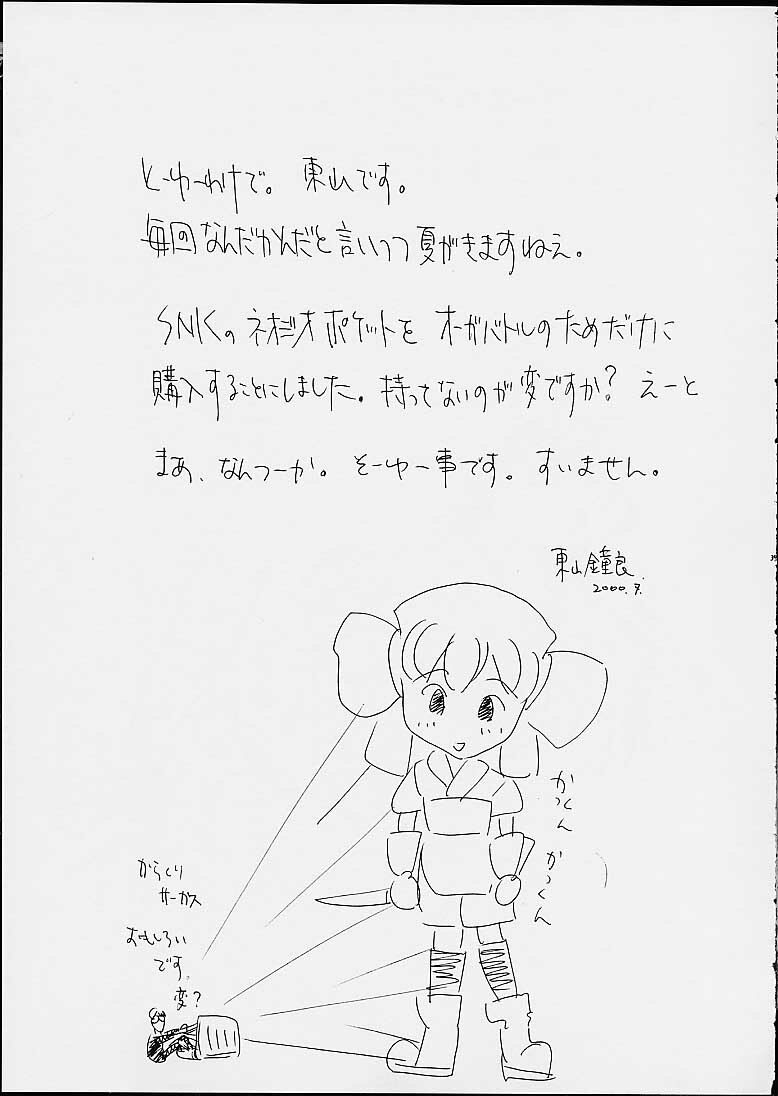 と-ゆーわけで。 東山です。
毎回なんだかんだと言いつつ夏がきますねぇ。
SNKのネオジオポケットを オーガバトルのためだけに
購入することにしました。持ってないのが変ですか? えーと
まあ、なんつーか。そーゆー事です。すいません。
東山鐘良
2000.7.
かっくん
かっくん
からくり
サーカス
おもしろい
です。
変?